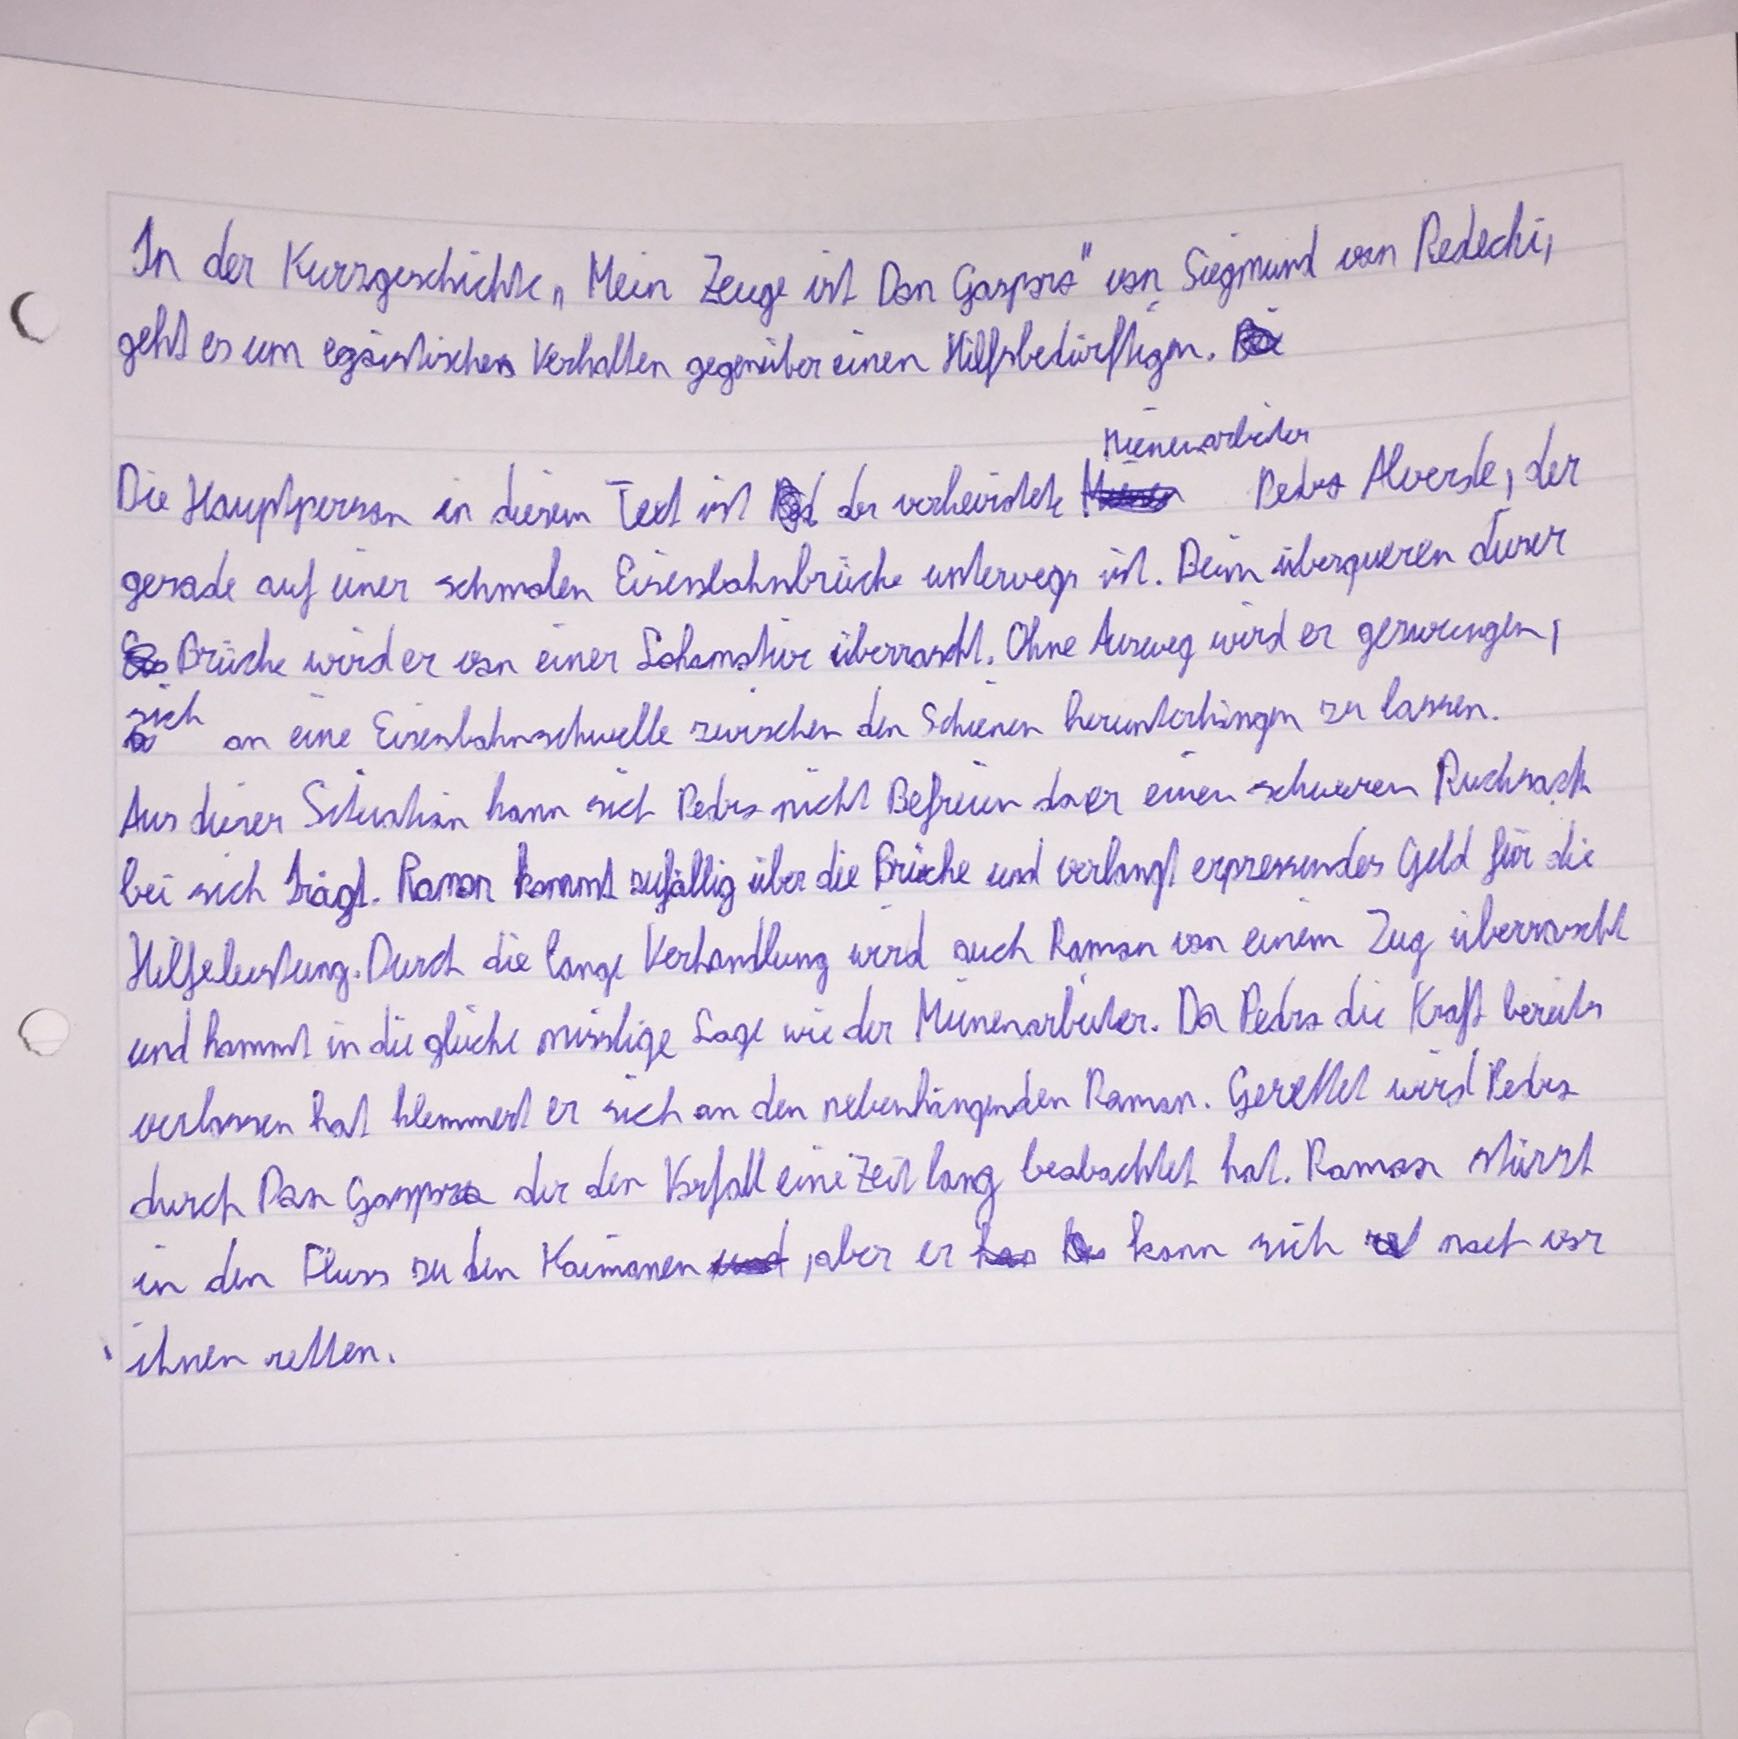 In der Kurzgeschichte „Mein Zeuge ist Don Gasparo" von Siegmund von Redecki,
geht es um egoistisches Verhalten gegenüber einen Hilfsbedürftigen.
Minenarbeiter
Die Hauptperson in diesem Text ist der verheiratete Pedro Alverde, der
gerade auf einer schmalen Eisenbahnbrücke unterwegs ist. Beim überqueren dieser
Brücke wird er von einer Lokomotive überrascht. Ohne Ausweg wird er gezwungen,
sich an eine Eisenbahnschwelle zwischen den Schienen herunterhängen zu lassen.
Aus dieser Situation kann sich Pedro nicht Befreien da er einen schweren Rucksack
bei sich trägt. Ramon kommt zufällig über die Brücke und verlangt erpressendes Geld für die
Hilfeleistung. Durch die lange Verhandlung wird auch Ramon von einem Zug überrascht
und kommt in die gleiche misslige Lage wie der Minenarbeiter. Da Pedro die Kraft bereits
verlassen hat klemmert er sich an den nebenhängenden Ramon. Gerettet wird Pedro
durch Don Gasparo der den Vorfall eine Zeit lang beobachtet hat. Ramon stürzt
in den Fluss zu den Kaimanen , aber er kann sich noch vor
ihnen retten.